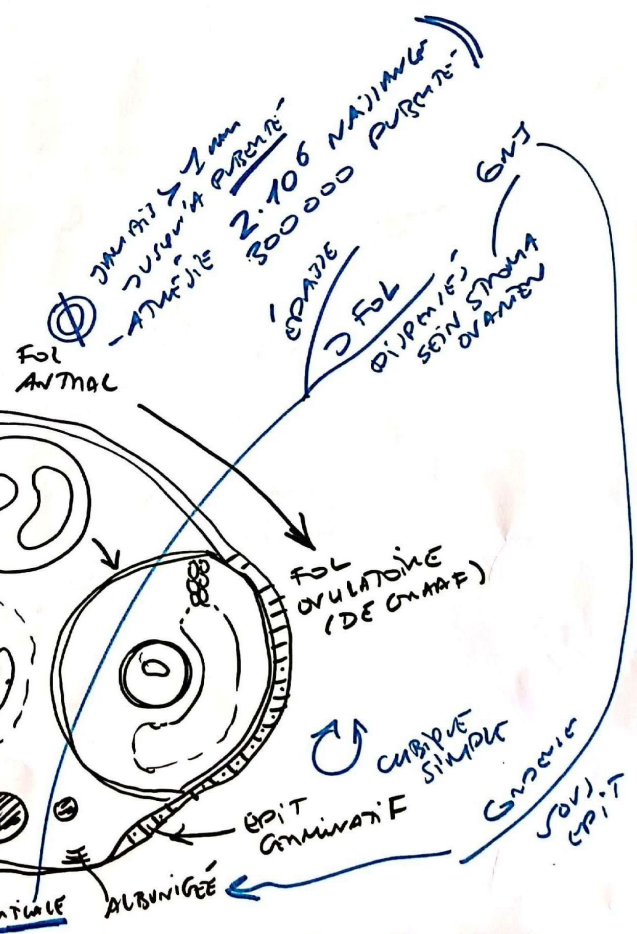 JAMAIS > 1 mm
JUSQU'A PUBERTÉ
- ATRÉSIE 2.106 NAISSANCE
300 000 PUBERTÉ
FOL
ANTRAL
ÉPAISSE
⊃ FOL
DISPERSÉS
SEIN STROMA
OVARIEN
CONJ
FOL
OVULATOIRE
(DE GRAAF)
CUBIQUE
SIMPLE
EPIT
GERMINATIF
CONDENSÉ
SOUS.
EPIT
ALBUGINÉE